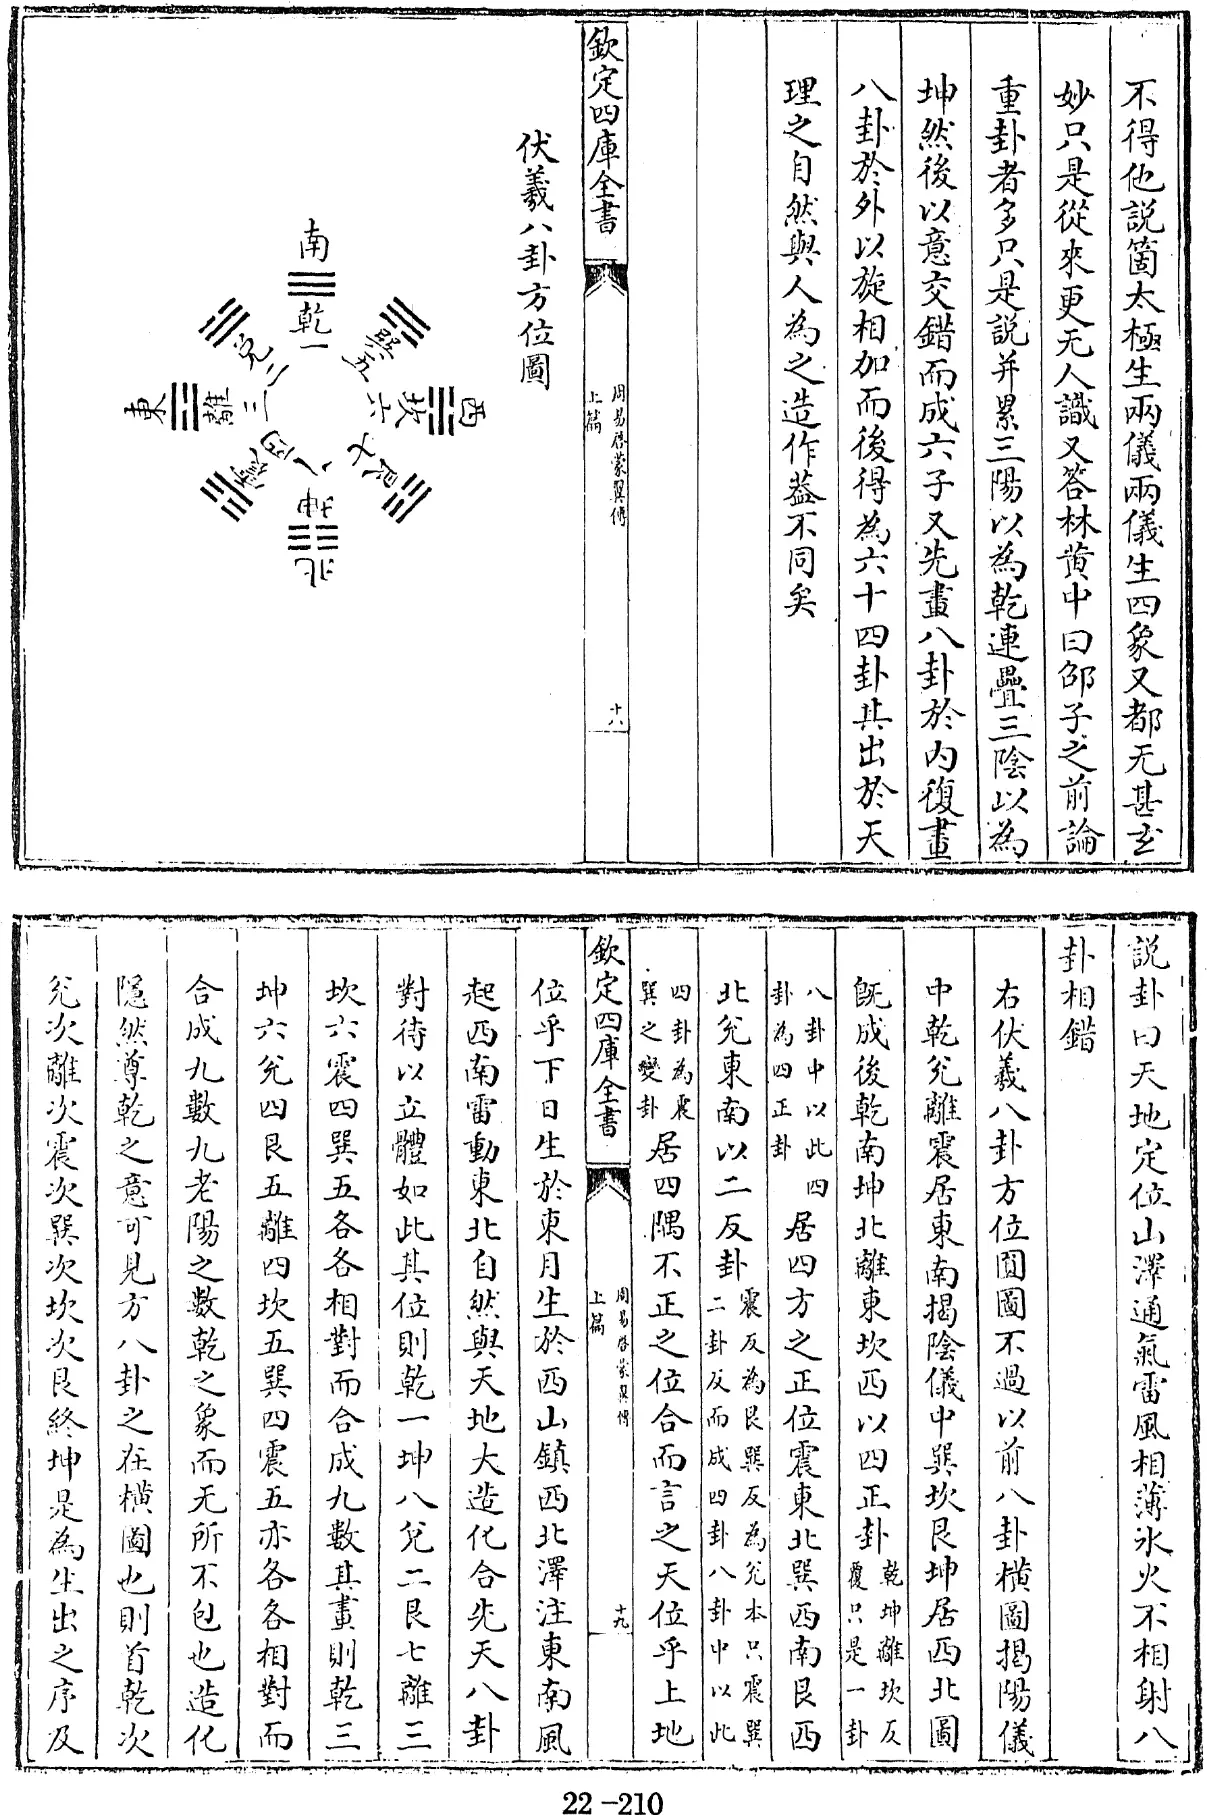 不得他説箇太極生兩儀兩儀生四象又都无甚玄
妙只是從來更无人識又答林黄中曰邵子之前論
重卦者多只是説并累三陽以為乾連疊三陰以為
坤然後以意交錯而成六子又先畫八卦於内復畫
八卦於外以旋相加而後得為六十四卦其出於天
理之自然與人為之造作葢不同矣
欽定四庫全書
周易啓蒙翼傳
上篇
十八
伏羲八卦方位圖
南
乾一
兌二
離三
東
震四
巽五
坎六
西
艮七
坤八
北
説卦曰天地定位山澤通氣雷風相薄水火不相射八
卦相錯
右伏羲八卦方位圓圖不過以前八卦横圖揭陽儀
中乾兌離震居東南揭陰儀中巽坎艮坤居西北圖
既成後乾南坤北離東坎西以四正卦
乾坤離坎反
覆只是一卦
八卦中以此四
卦為四正卦
居四方之正位震東北巽西南艮西
北兌東南以二反卦
震反為艮巽反為兌本只震巽
二卦反而成四卦八卦中以此
四卦為震
巽之變卦
居四隅不正之位合而言之天位乎上地
欽定四庫全書
周易啓蒙翼傳
上篇
十九
位乎下日生於東月生於西山鎮西北澤注東南風
起西南雷動東北自然與天地大造化合先天八卦
對待以立體如此其位則乾一坤八兌二艮七離三
坎六震四巽五各各相對而合成九數其畫則乾三
坤六兌四艮五離四坎五巽四震五亦各各相對而
合成九數九老陽之數乾之象而无所不包也造化
隱然尊乾之意可見方八卦之在横圖也則首乾次
兌次離次震次巽次坎次艮終坤是為生出之序及
22-210